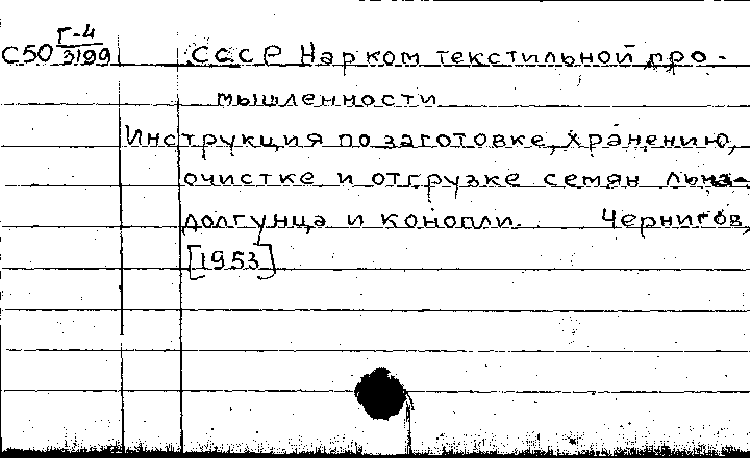 Г-4
С50 3199 СССР Нарком текстильной про-
мышленности
Инструкция по заготовке, хранению,
очистке и отгрузке семян льна-
долгунца и конопли. Чернигов,
[1953]